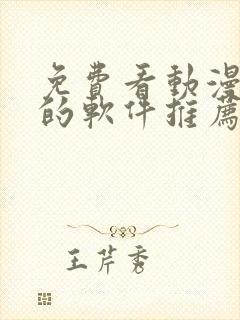 免費看動漫
的軟件推薦
王芹秀